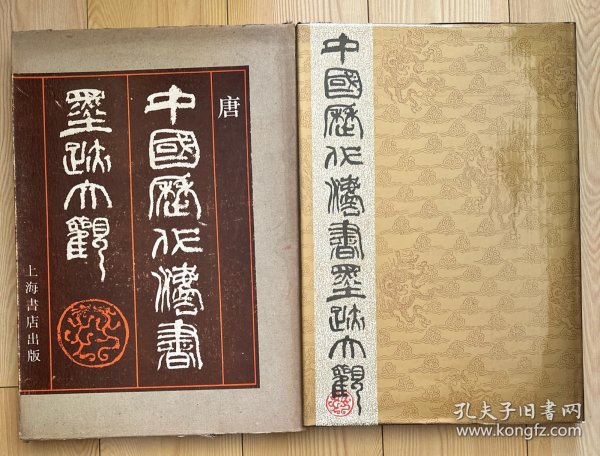 唐
中國歷代法書
墨跡大觀
上海書店出版
中國歷代法書墨跡大觀
孔夫子旧书网
www.kongfz.com